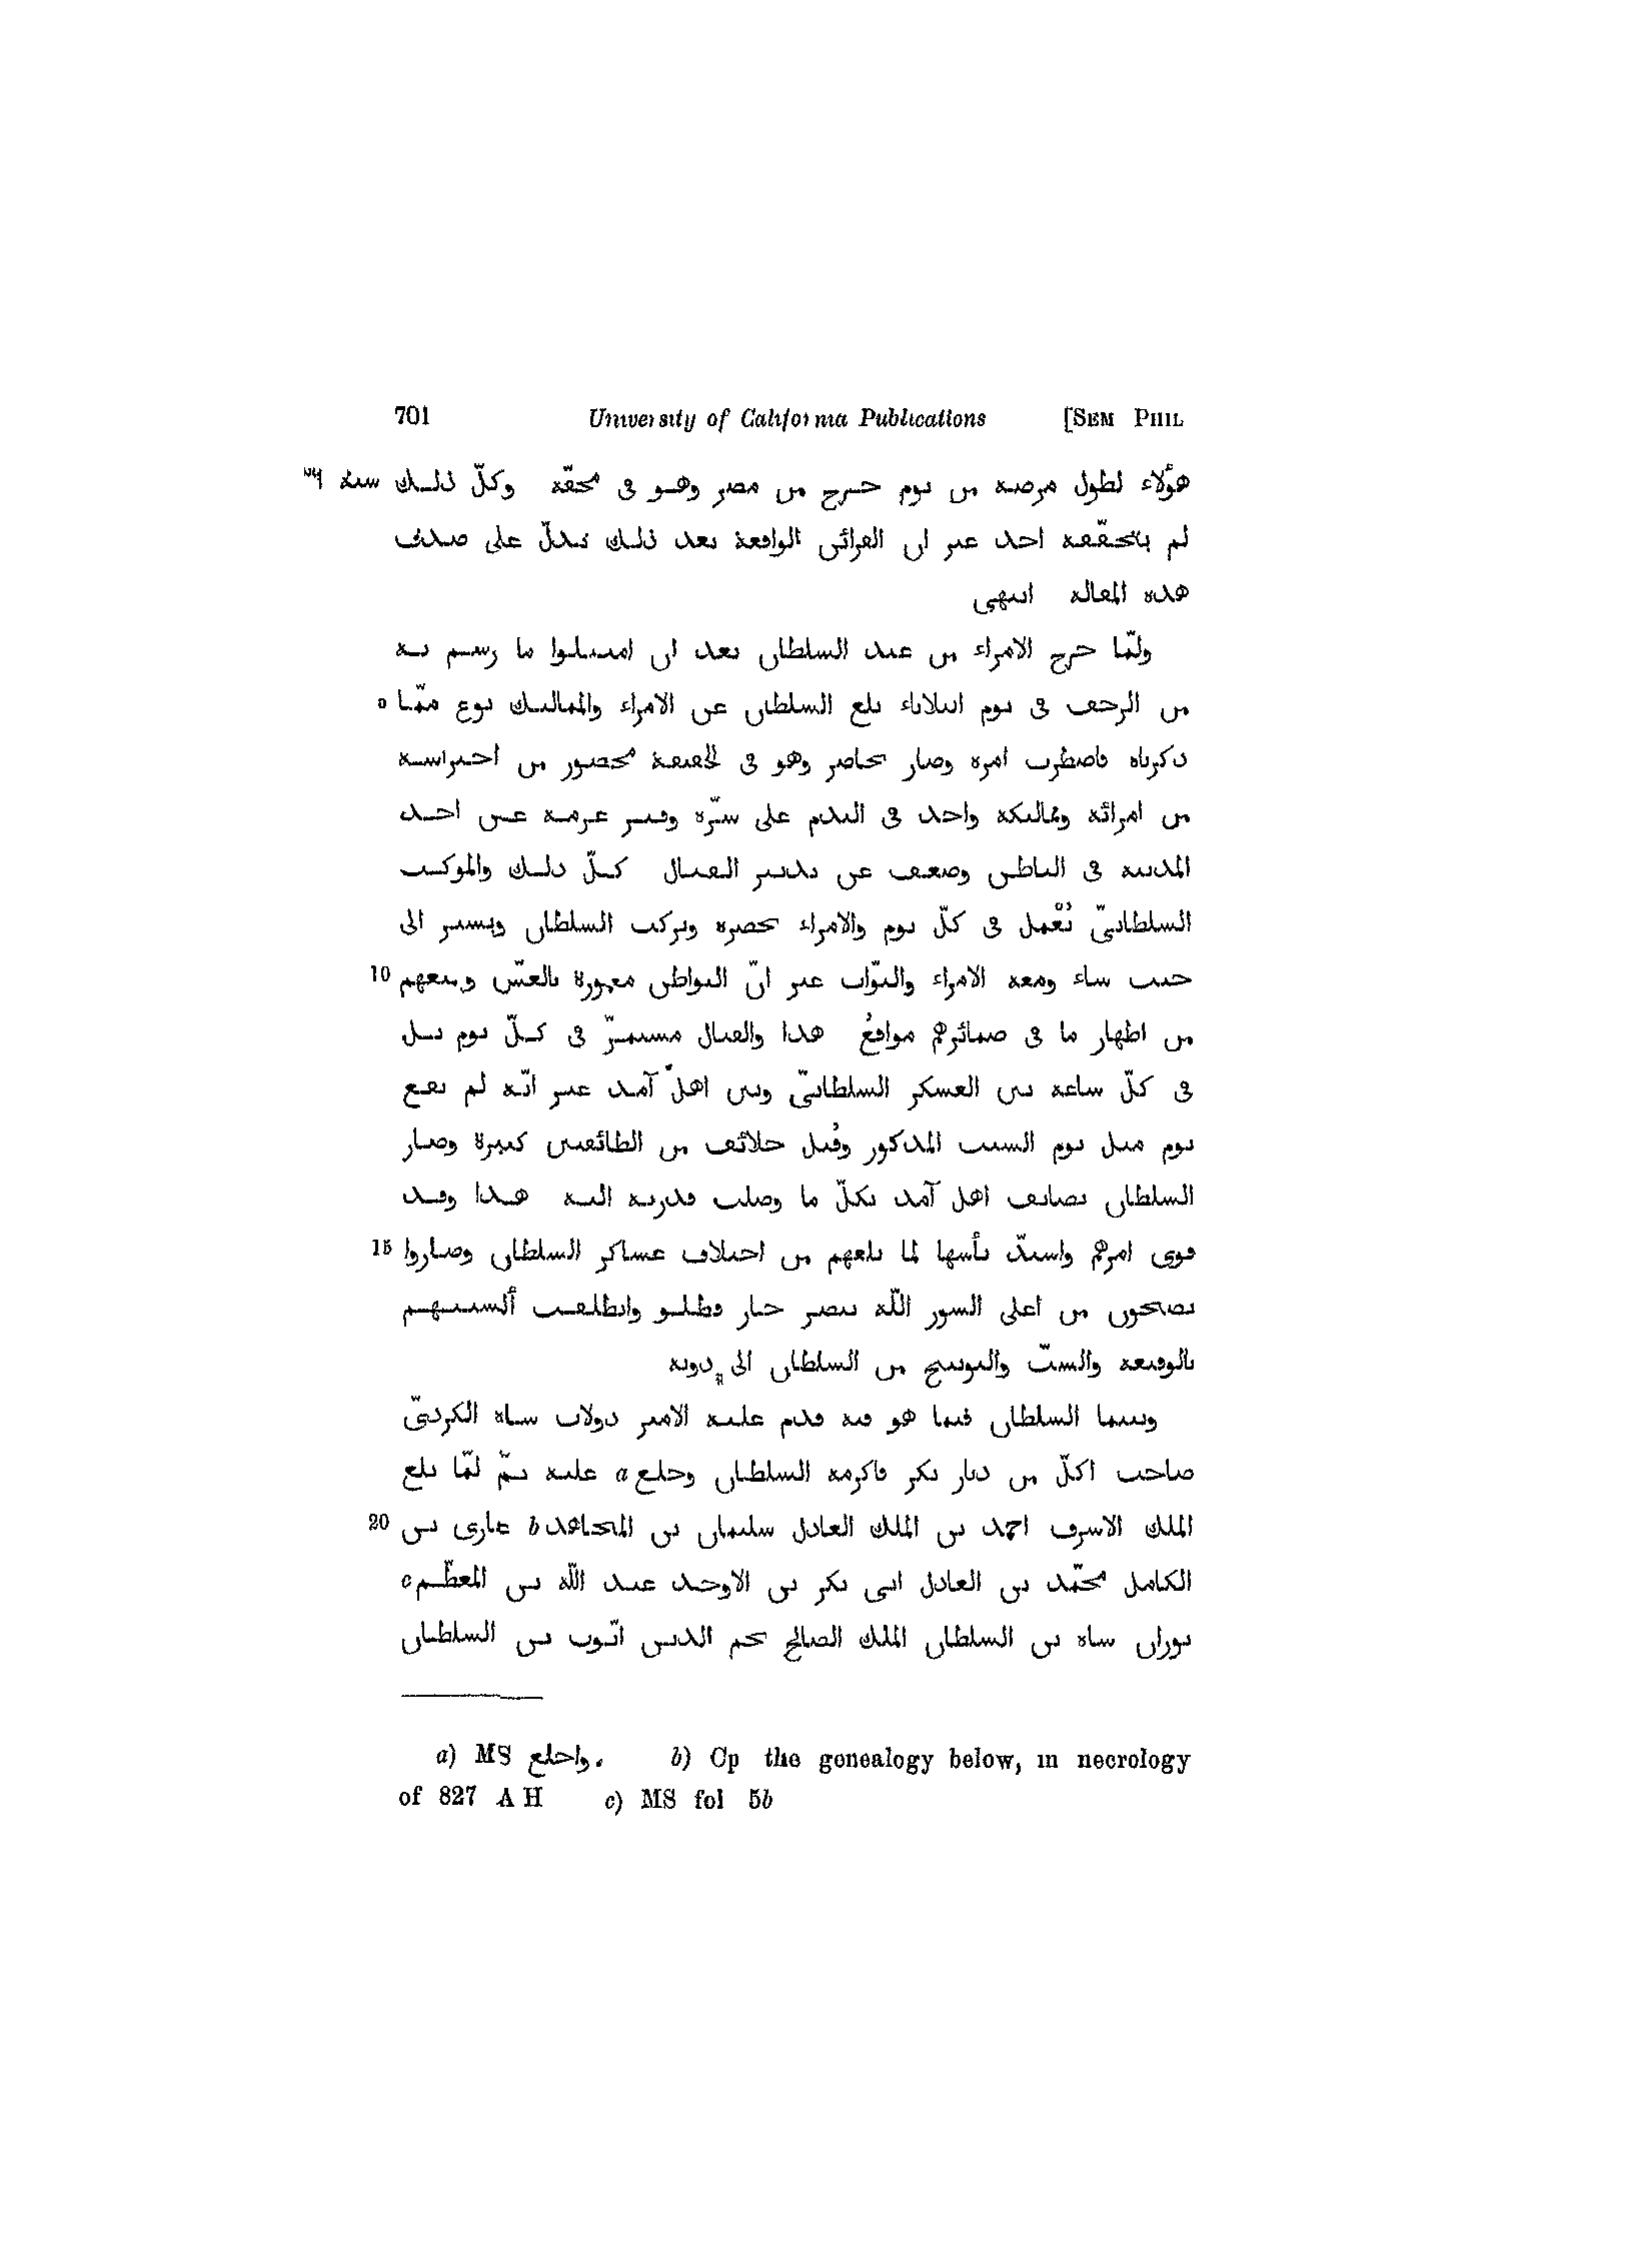 701 University of California Publications [SEM PHIL
هؤلاء لطول مرضه من يوم خرج من مصر وهو فى محفّة وكلّ ذلك سنة ٨٣٦
لم يتحقّقه احد غير ان القرائن الواقعة بعد ذلك تدلّ على صدق
هذه المقالة انتهى
ولمّا خرج الامراء من عند السلطان بعد ان امتثلوا ما رسم به
من الزحف فى يوم الثلاثاء بلغ السلطان عن الامراء والمماليك نوع ممّا 5
ذكرناه فاضطرب امره وصار يحاصر وهو فى الحقيقة محصور من احتراسه
من امرائه ومماليكه واخذ فى الندم على سفره وفتر عزمه عن اخذ
المدينة فى الباطن وضعف عن تدبير القتال كلّ ذلك والموكب
السلطانىّ يُعْمل فى كلّ يوم والامراء تحضره ويركب السلطان ويسير الى
حيث شاء ومعه الامراء والنوّاب غير انّ البواطن معمورة بالغشّ ويمنعهم 10
من اظهار ما فى ضمائرهم موانعُ هذا والقتال مستمرّ فى كلّ يوم بل
فى كلّ ساعة بين العسكر السلطانىّ وبين اهل آمد غير انّه لم يقع
يوم مثل يوم السبت المذكور وقُتل خلائق من الطائفتين كثيرة وصار
السلطان يضايق اهل آمد بكلّ ما وصلت قدرته اليه هذا وقد
قوى امرهم واشتدّ بأسها لما بلغهم من اختلاف عساكر السلطان وصاروا 15
يصيحون من اعلى السور اللّه ينصر جار قطلو وانطلقت ألسنتهم
بالوقيعة والسبّ والتوبيخ من السلطان الى دونه
وبينما السلطان فيما هو فيه قدم عليه الامير دولات شاه الكردىّ
صاحب اكلّ من ديار بكر فاكرمه السلطان وخلع a عليه ثمّ لمّا بلغ
الملك الاشرف احمد بن الملك العادل سليمان بن المجاهد b غازى بن 20
الكامل محمّد بن العادل ابى بكر بن الاوحد عبد اللّه بن المعظّم c
توران شاه بن السلطان الملك الصالح نجم الدين ايّوب بن السلطان
a) MS واخلع. b) Cp the genealogy below, in necrology
of 827 A H c) MS fol 5b